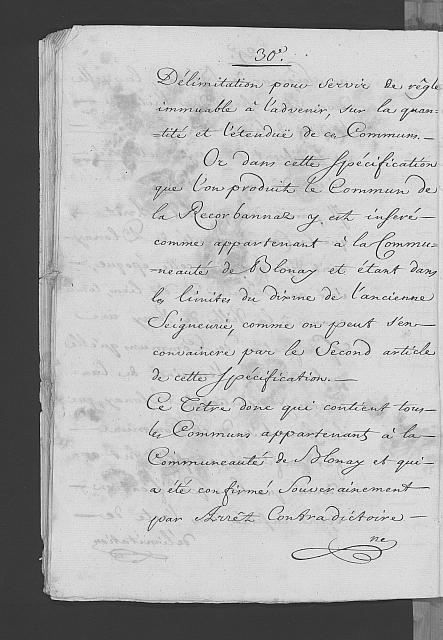 30.e
Délimitation pour servir de règle
immuable à l'advenir, sur la quan=
=tité et l'étenduë de ces Communs.—
Or dans cette spécification
que l'on produit le Commun de
la Recorbannaz y est inseré—
comme appartenant à la Commu=
=neauté de Blonay et étant dans
les limites du dixme de l'ancienne
Seigneurie, comme on peut s'en—
convaincre par le Second article
de cette spécification.—
Ce Titre donc qui contient tous—
les Communs appartenant à la—
Communeauté de Blonay et qui—
a été confirmé Souverainement—
par Arrêt Contradictoire—
ne